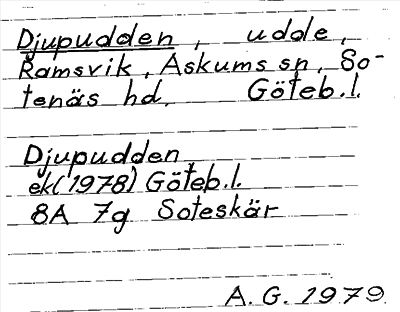 Djupudden, udde,
Ramsvik, Askums sn, So-
tenäs hd, Göteb.l.
Djupudden
ek(1978) Göteb.l.
8A 7g Soteskär
A. G. 1979